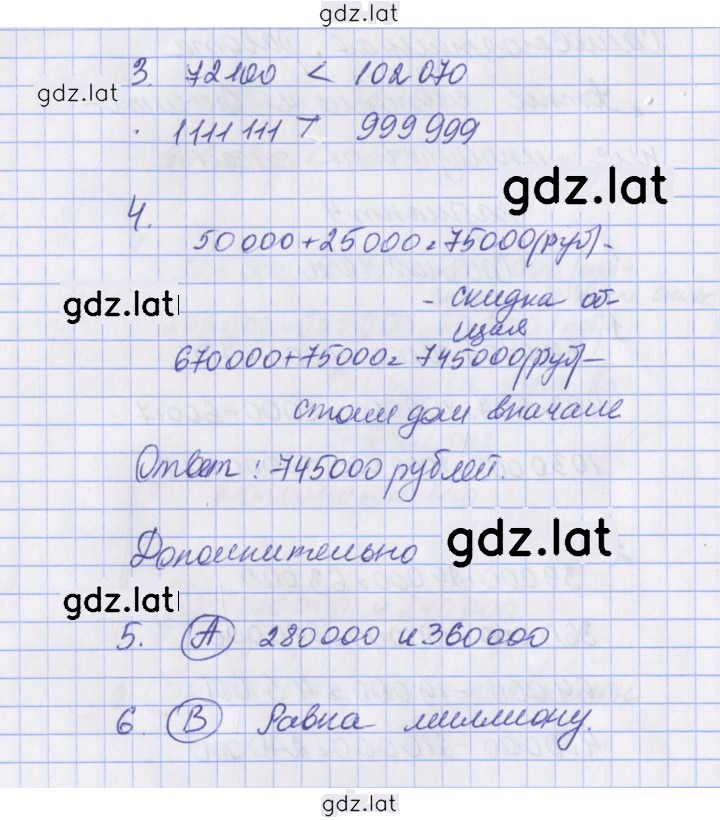 gdz.lat
3. 72100 < 102070
gdz.lat
1111 111 > 999 999
gdz.lat
4.
50 000 + 25000 = 75000 (руб) -
gdz.lat
- скидка об-
щая
670000 + 75000 = 745000 (руб) -
стоил дом вначале
Ответ: 745000 рублей.
Дополнительно
gdz.lat
gdz.lat
5. А 280000 и 360000
6. В Равна миллиону.
gdz.lat